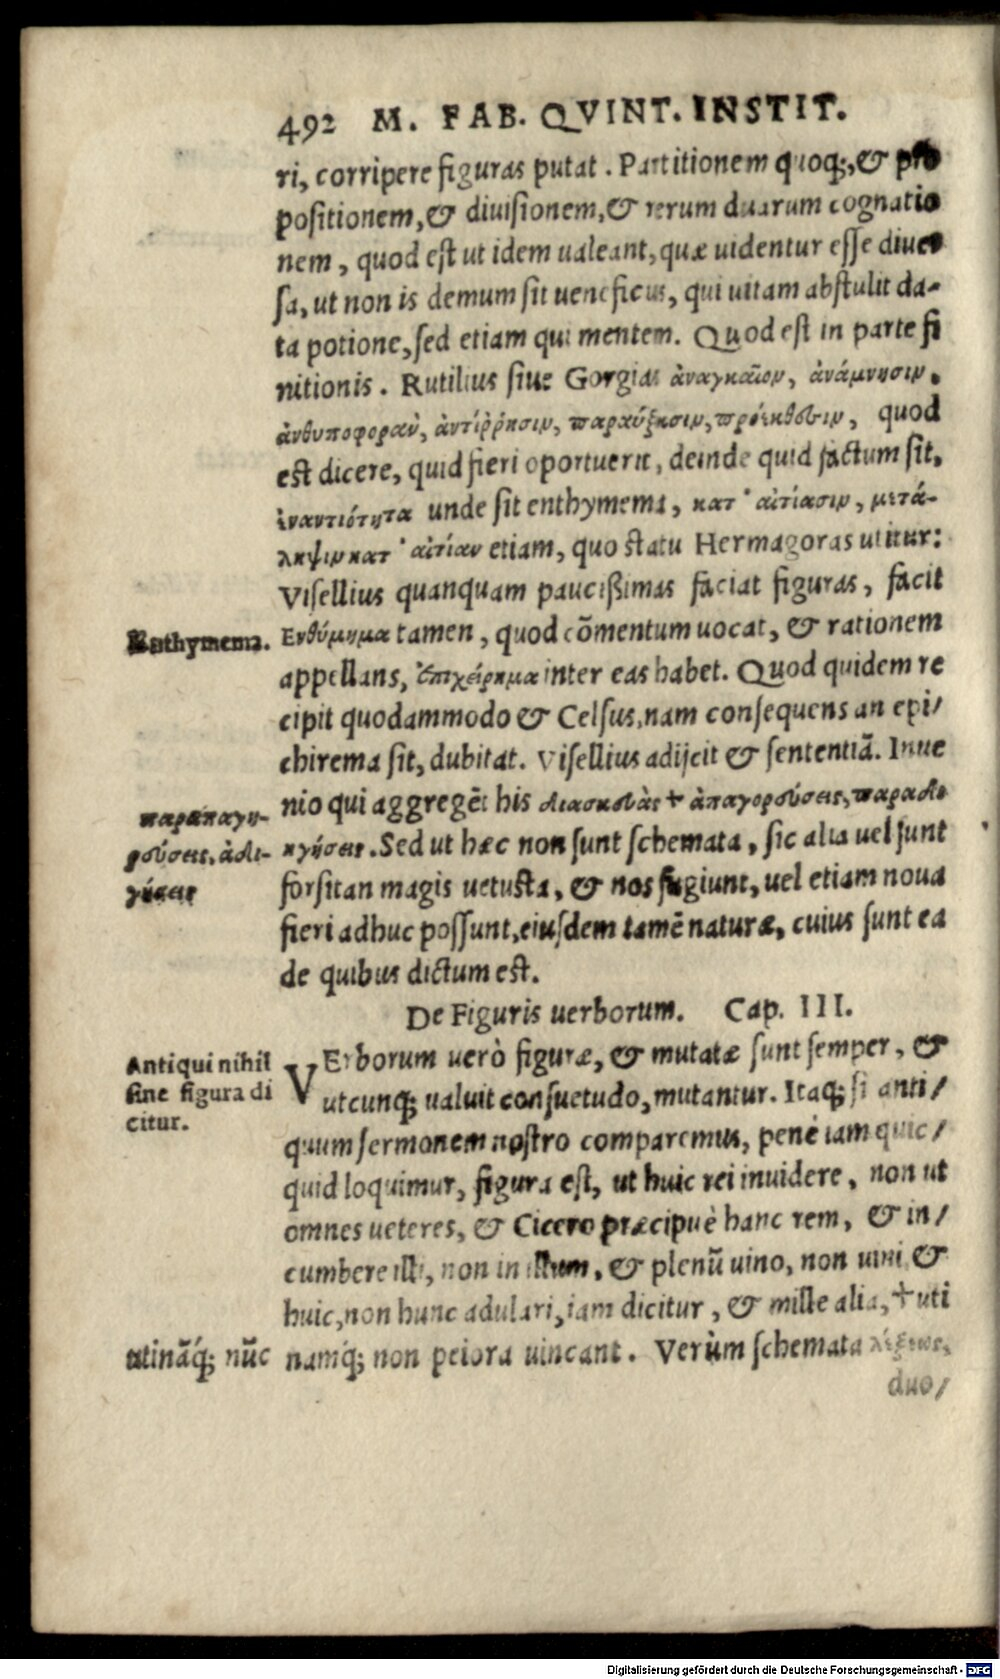 492 M. FAB. QVINT. INSTIT.
ri, corripere figuras putat. Partitionem quoq;, & pro
positionem, & diuisionem, & rerum duarum cognatio
nem, quod est ut idem ualeant, quæ uidentur esse diuer
sa, ut non is demum sit ueneficus, qui uitam abstulit da-
ta potione, sed etiam qui mentem. Quod est in parte fi
nitionis. Rutilius siue Gorgias ἀναγκαῖον, ἀνάμνησιν,
ἀνθυποφορὰν, ἀντίῤῥησιν, παραύξησιν, προέκθεσιν, quod
est dicere, quid fieri oportuerit, deinde quid factum sit,
ἐναντιότητα unde sit enthymema, κατ' αἰτίασιν, μετά-
ληψιν κατ' αἰτίαν etiam, quo statu Hermagoras utitur:
Visellius quanquam paucißimas faciat figuras, facit
Enthymema. Ενθύμημα tamen, quod cōmentum uocat, & rationem
appellans, ἐπιχείρημα inter eas habet. Quod quidem re
cipit quodammodo & Celsus, nam consequens an epi/
chirema sit, dubitat. Visellius adijcit & sententiā. Inue
nio qui aggregēt his διασκευὰς + ἀπαγορεύσεις, παραδι
ηγήσεις. Sed ut hæc non sunt schemata, sic alia uel sunt
γήσεις
forsitan magis uetusta, & nos fugiunt, uel etiam noua
fieri adhuc possunt, eiusdem tamē naturæ, cuius sunt ea
de quibus dictum est.
De Figuris uerborum. Cap. III.
Antiqui nihil
sine figura di
citur.
VErborum uerò figuræ, & mutatæ sunt semper, &
utcunq; ualuit consuetudo, mutantur. Itaq; si anti/
quum sermonem nostro comparemus, penè iam quic/
quid loquimur, figura est, ut huic rei inuidere, non ut
omnes ueteres, & Cicero præcipuè hanc rem, & in/
cumbere illi, non in illum, & plenū uino, non uini, &
huic, non hunc adulari, iam dicitur, & mille alia, + uti
utināq́; nūc namq́; non peiora uincant. Verùm schemata λέξεως,
duo/